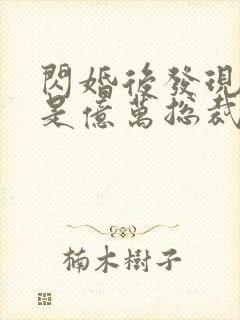 閃婚後發現
是億萬總裁
楠木樹子